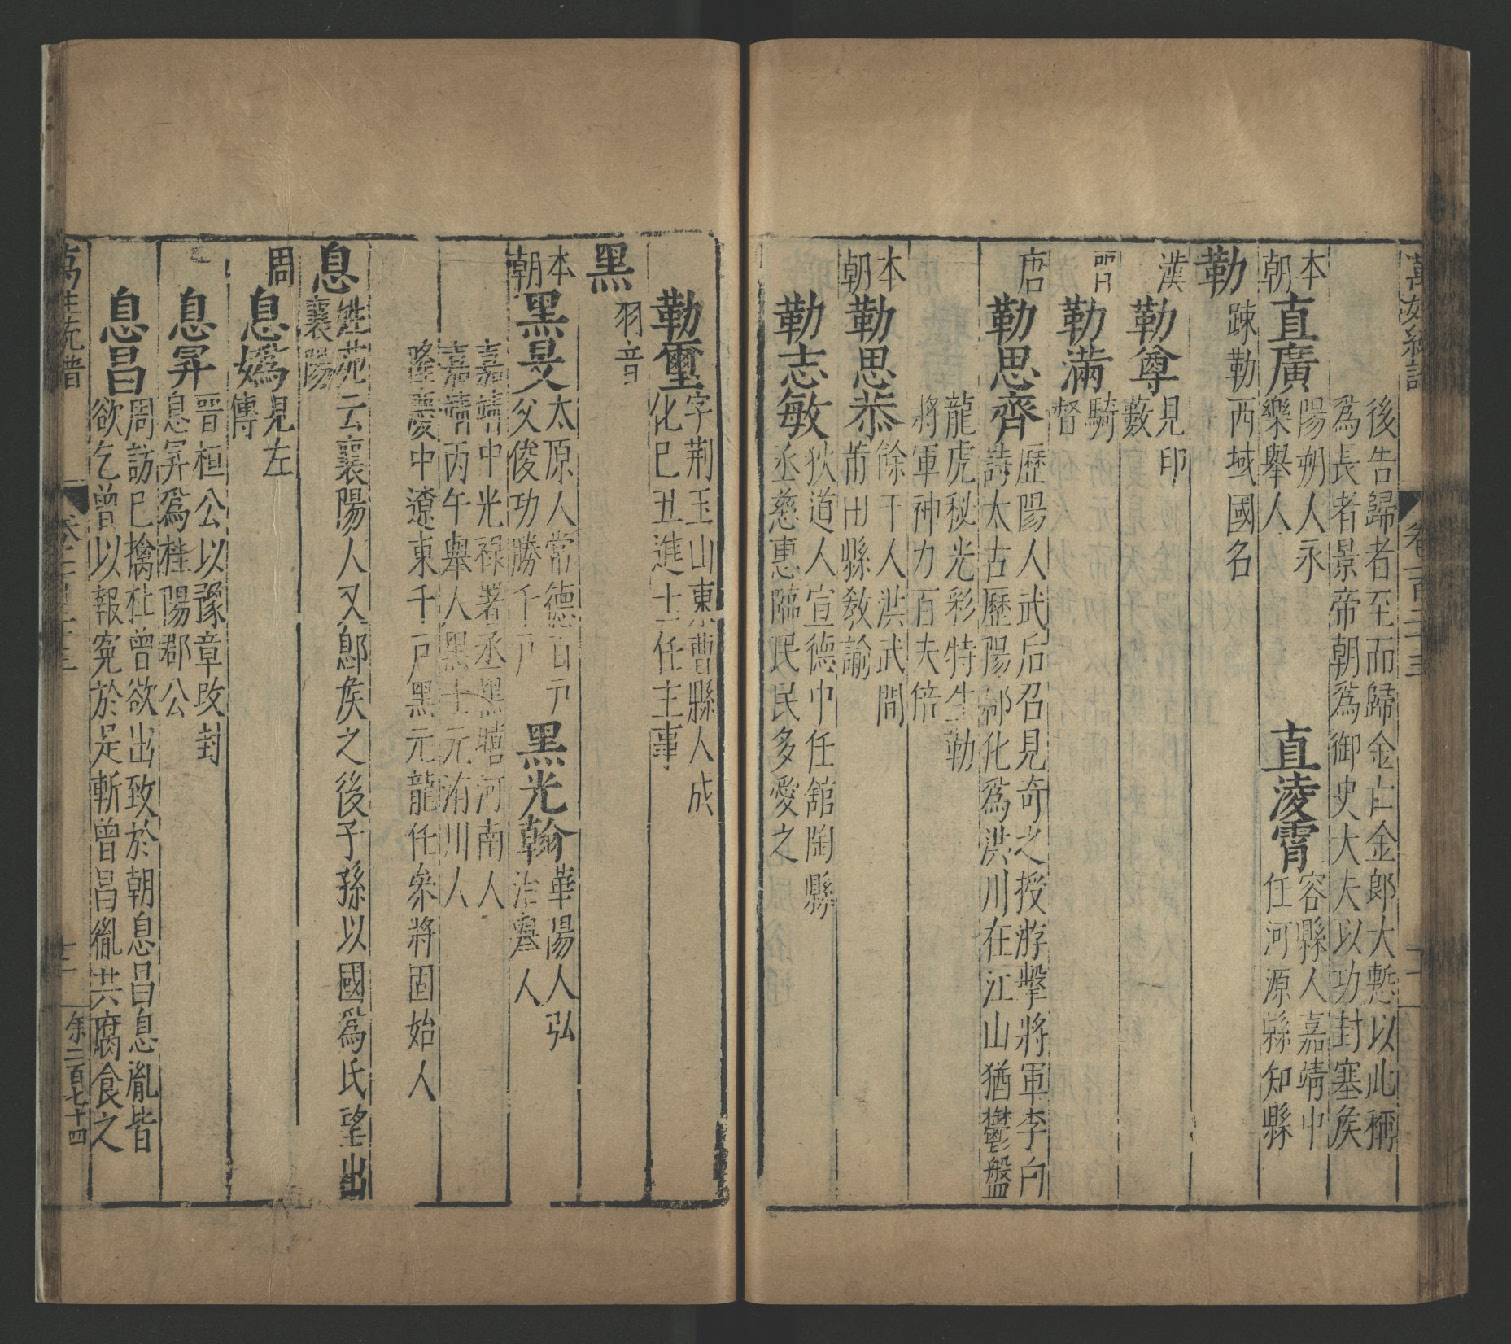 萬姓統譜
卷一百二十三
後告歸者至而歸金亡金郎大慙以此稱
爲長者景帝朝爲御史大夫以功封塞侯
本朝
直廣
陽朔人永
樂舉人
直淩霄
容縣人嘉靖中
任河源縣知縣
勒
疎勒西域國名
漢
勒尊
見印
藪
晋
勒滿
騎
督
唐
勒思齊
歷陽人武后召見奇之授游擊將軍李白
詩太古歷陽郡化爲洪川在江山猶鬱盤
龍虎秘光彩特生勒
將軍神力百夫倍
本朝
勒思恭
餘干人洪武間
莆田縣敎諭
勒志敏
狄道人宣德中任舘陶縣
丞慈惠臨民民多愛之
勒璽
字荆玉山東曹縣人成
化巳丑進士任主事
黑
羽音
本朝
黑旻
太原人常德百戸
父俊功勝千戸
黑光翰
華陽人弘
治舉人
嘉靖中光祿署丞黑嘻河南人
嘉靖丙午舉人黑士元洧川人
隆慶中遼東千戸黑元龍任叅將固始人
息
姓苑云襄陽人又鄎侯之後子孫以國爲氏望出
襄陽
周
息嬀
見左
傳
息昇
晋桓公以豫章攺封
息昇爲桂陽郡公
息昌
周訪巳擒杜曾欲出致於朝息昌息胤皆
欲乞曾以報冤於是斬曾昌胤共臠食之
萬姓統譜
卷一百二十三
十二
余二百七十四